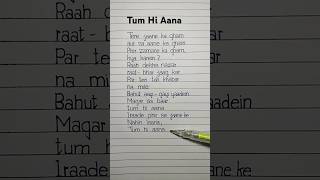 Tum Hi Aana
Tere jaane ka gham
aur na aane ka gham
Phir zamane ka gham,
kya karein?
Raah dekhe nazar
raat-bhar jaag kar
Par teri toh khabar
na mile
Bahut aayi-gayi yaadein
Magar iss baar
tum hi aana
Iraade phir se jaane ke
Nahin laana,
Tum hi aana
Raah de
raat-bh
Par te
na mi
Bahut
Magar
tum hi
Iraade